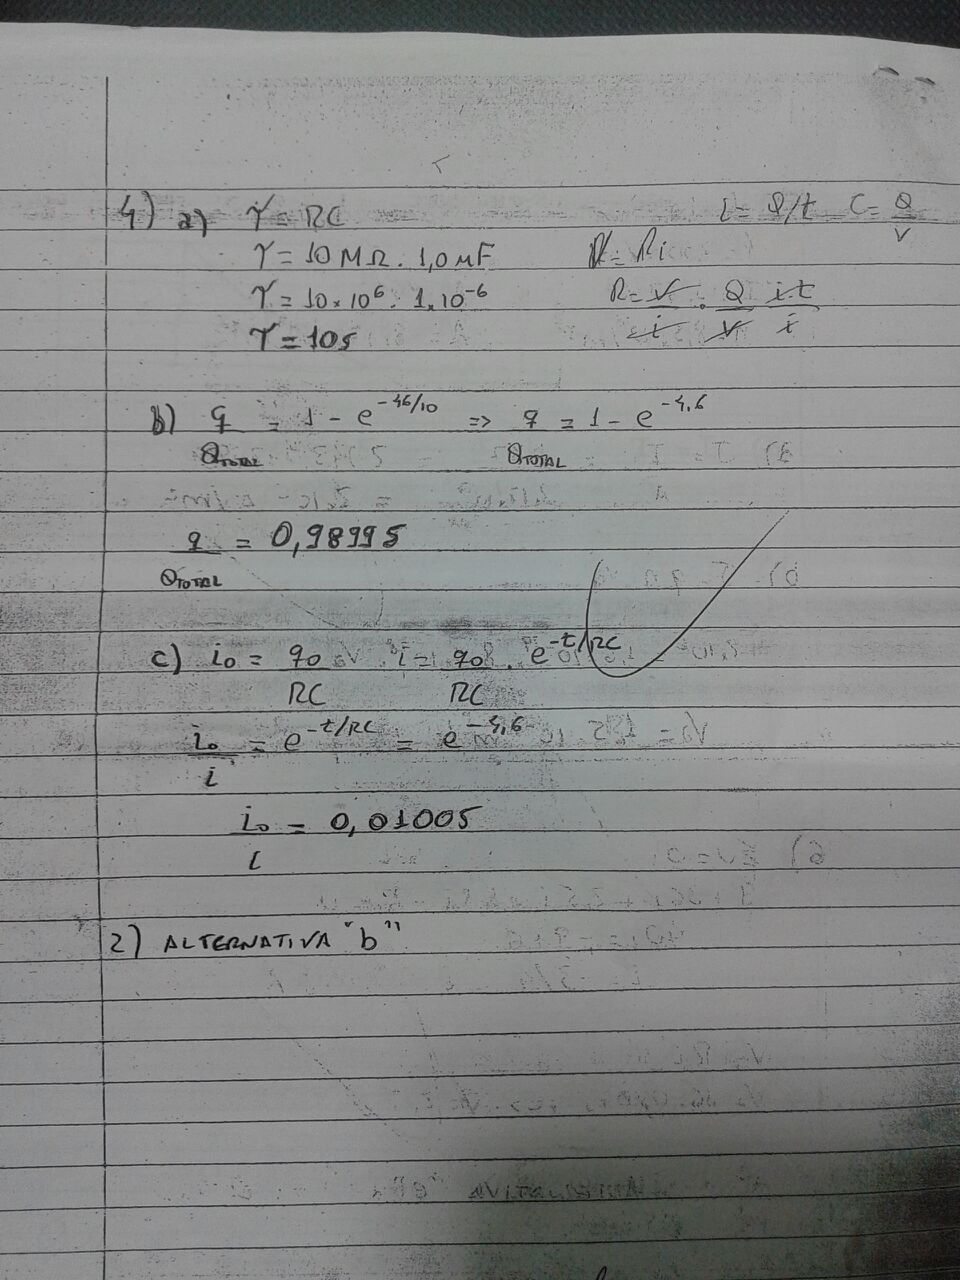 4) a) τ = RC    i = Q/t   C = Q/V
τ = 10 MΩ . 1,0 μF    V = Ri
τ = 10 × 10⁶ . 1 . 10⁻⁶    R = V/i . Q/V   i.t/i
τ = 10s
b) q/QTOTAL = 1 - e^-46/10 => q/QTOTAL = 1 - e^-4,6
q/QTOTAL = 0,98995
c) i₀ = q₀/RC   i = q₀/RC . e^-t/RC
i₀/i = e^-t/RC = e^-4,6
i₀/i = 0,01005
2) ALTERNATIVA "b"